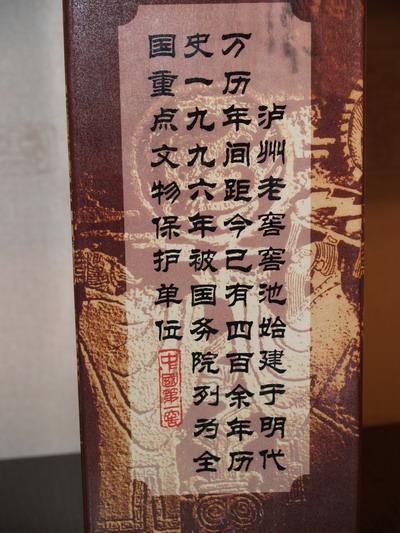 泸州老窖窖池始建于明代
万历年间距今已有四百余年历
史一九九六年被国务院列为全
国重点文物保护单位
中國第一窖